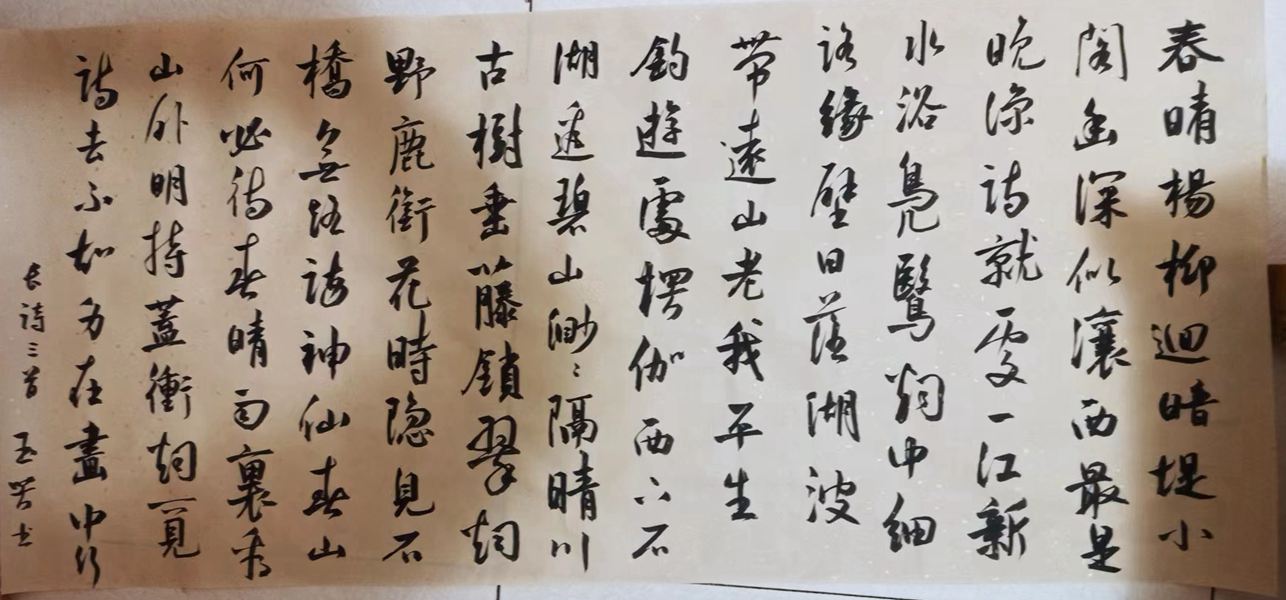 春晴楊柳迴暗堤小
閣幽深似瀼西最是
晚涼詩就處一江新
水浴鳧鷖烟中細
路緣壁日落湖波
帶遠山老我平生
釣遊處楞伽西下石
湖邊碧山渺〻隔晴川
古樹垂藤鎖翠烟
野鹿銜花時隐見石
橋無路訪神仙春山
何必待春晴雨裏看
山外明持蓋衝烟覓
詩去不知身在畫中行
長詩三首 玉书